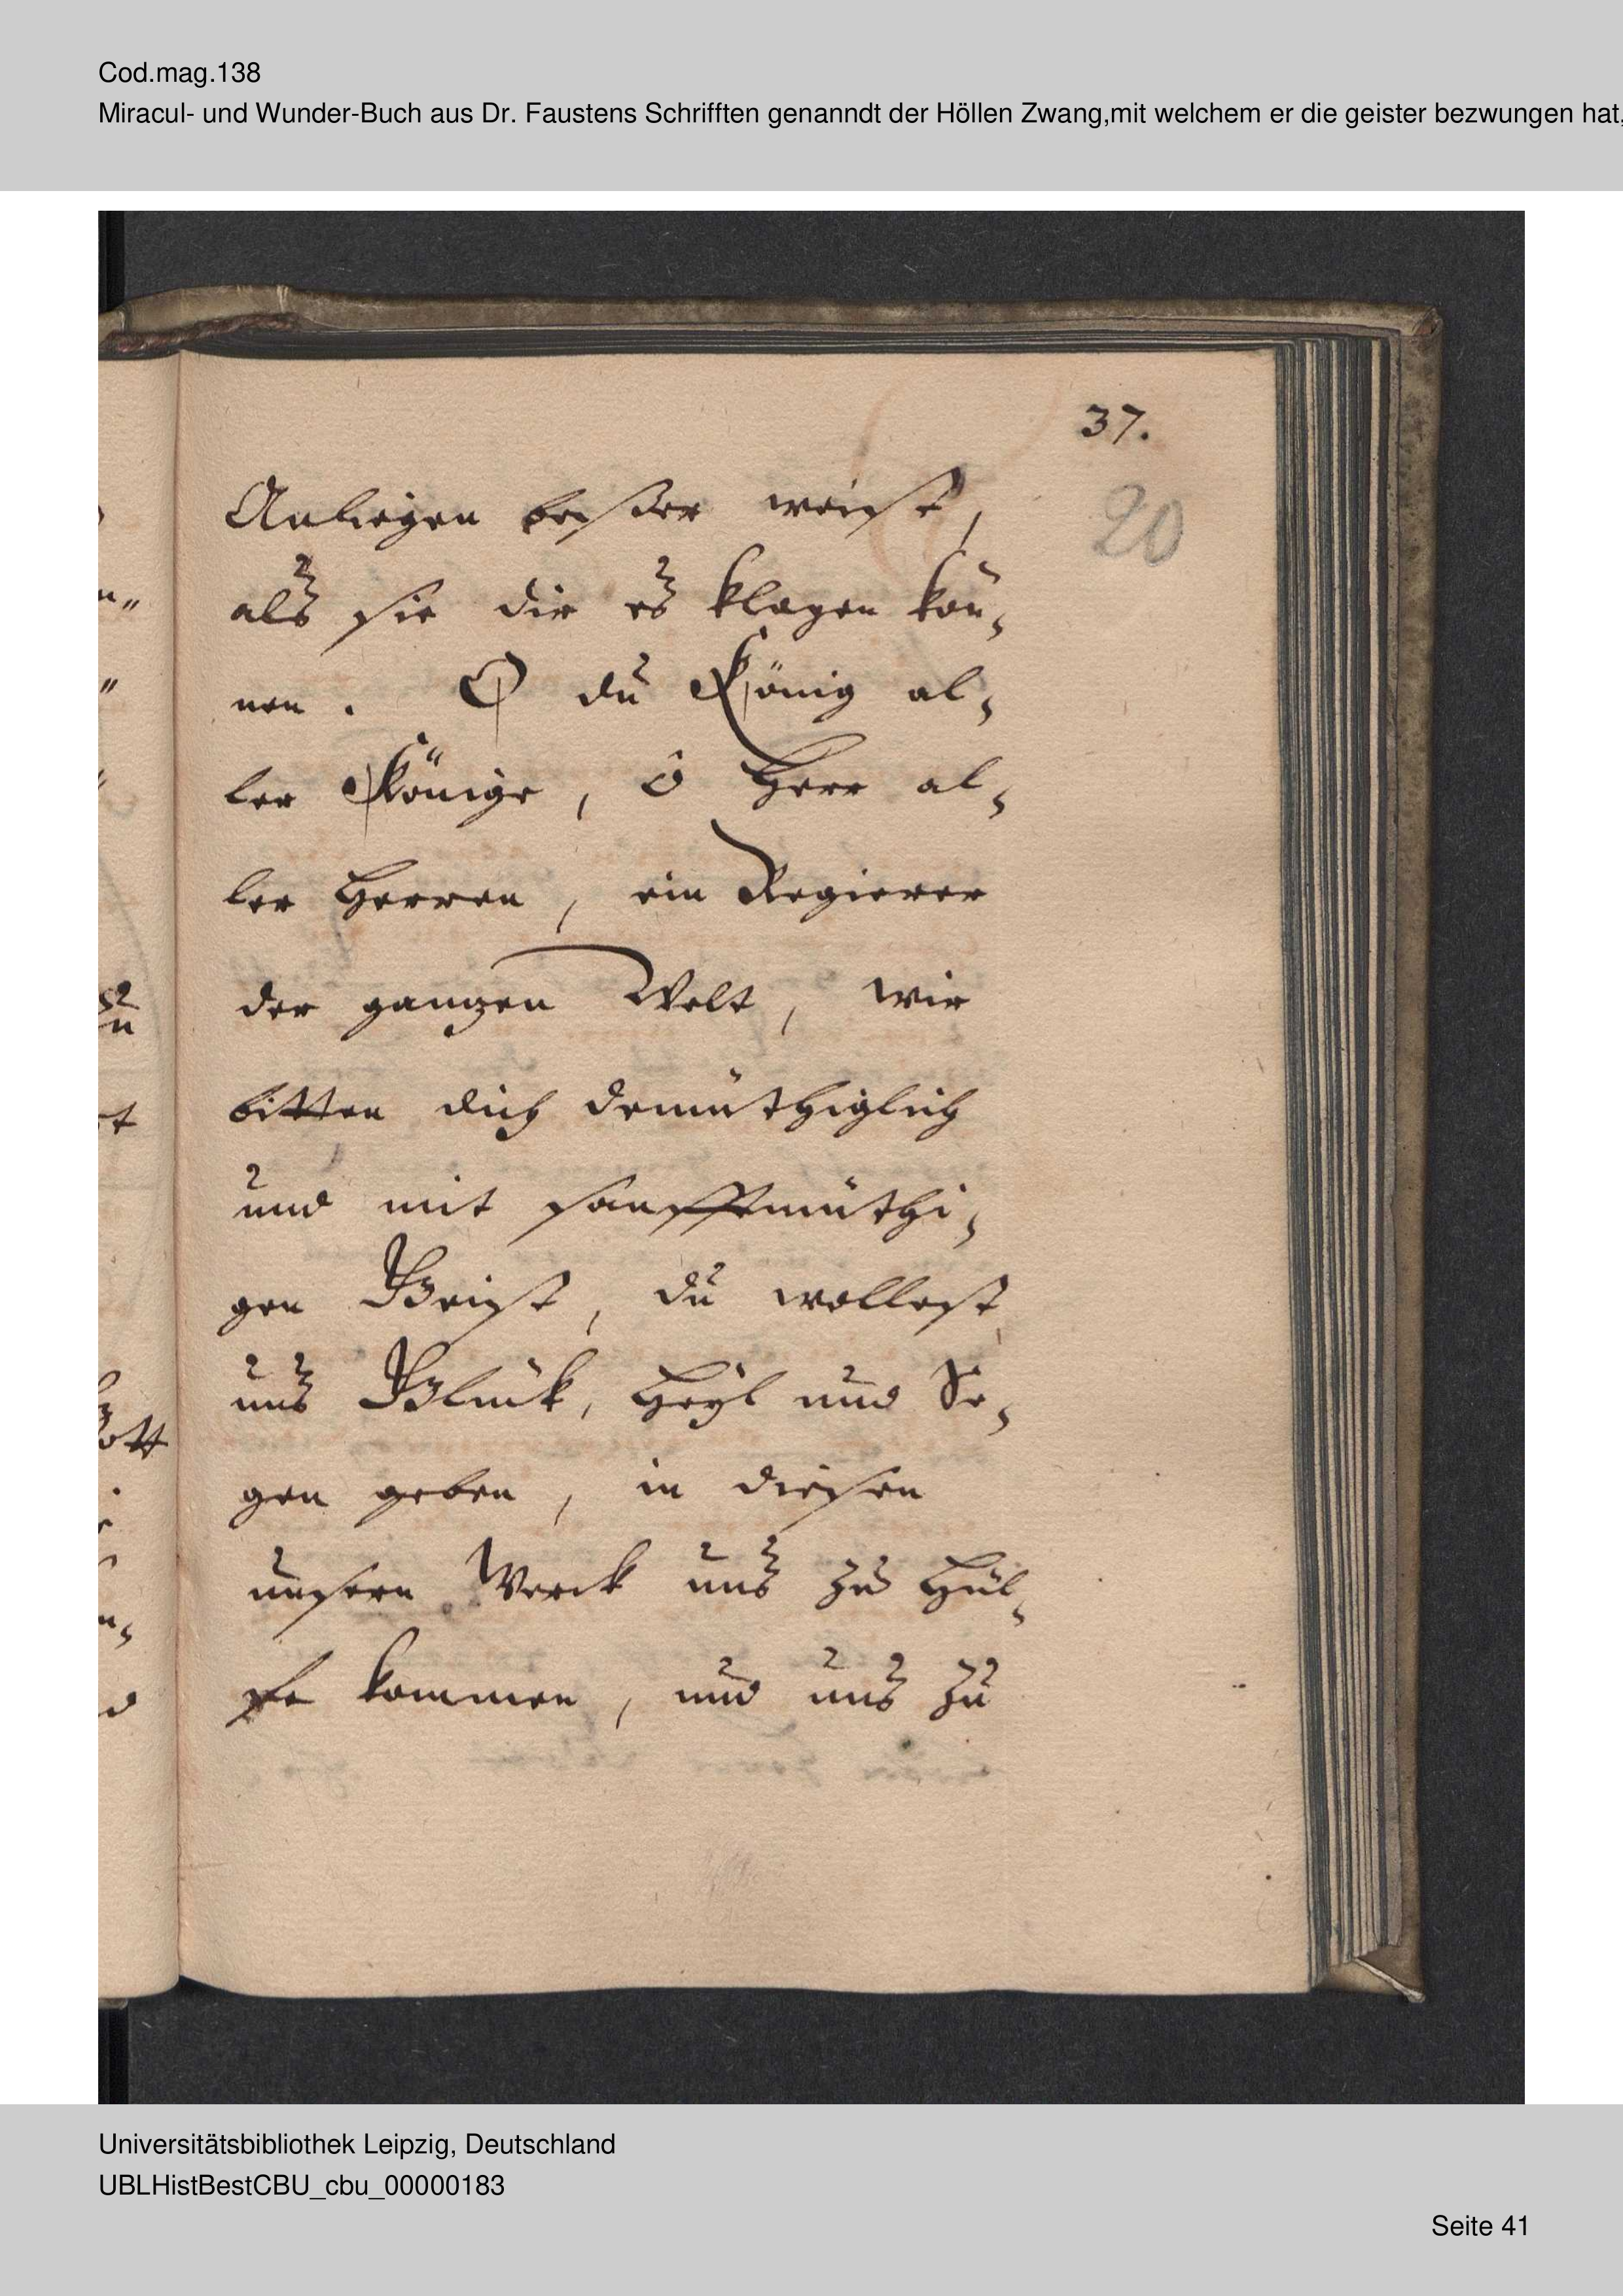 Cod.mag.138
Miracul- und Wunder-Buch aus Dr. Faustens Schrifften genanndt der Höllen Zwang,mit welchem er die geister bezwungen hat,
37.
20
Anliegen beßer weist,
als sie dir es klagen kön,
nen. O du König al,
ler Könige, ô Herr al,
ler Herren, ein Regierer
der ganzen Welt, wir
bitten dich demüthiglich
und mit sanfftmüthi,
gen Geist, du wollest
uns Glück, Heyl und Se,
gen geben, in diesen
unsern Werck uns zu Hül,
fe kommen, und uns zu
Universitätsbibliothek Leipzig, Deutschland
UBLHistBestCBU_cbu_00000183
Seite 41